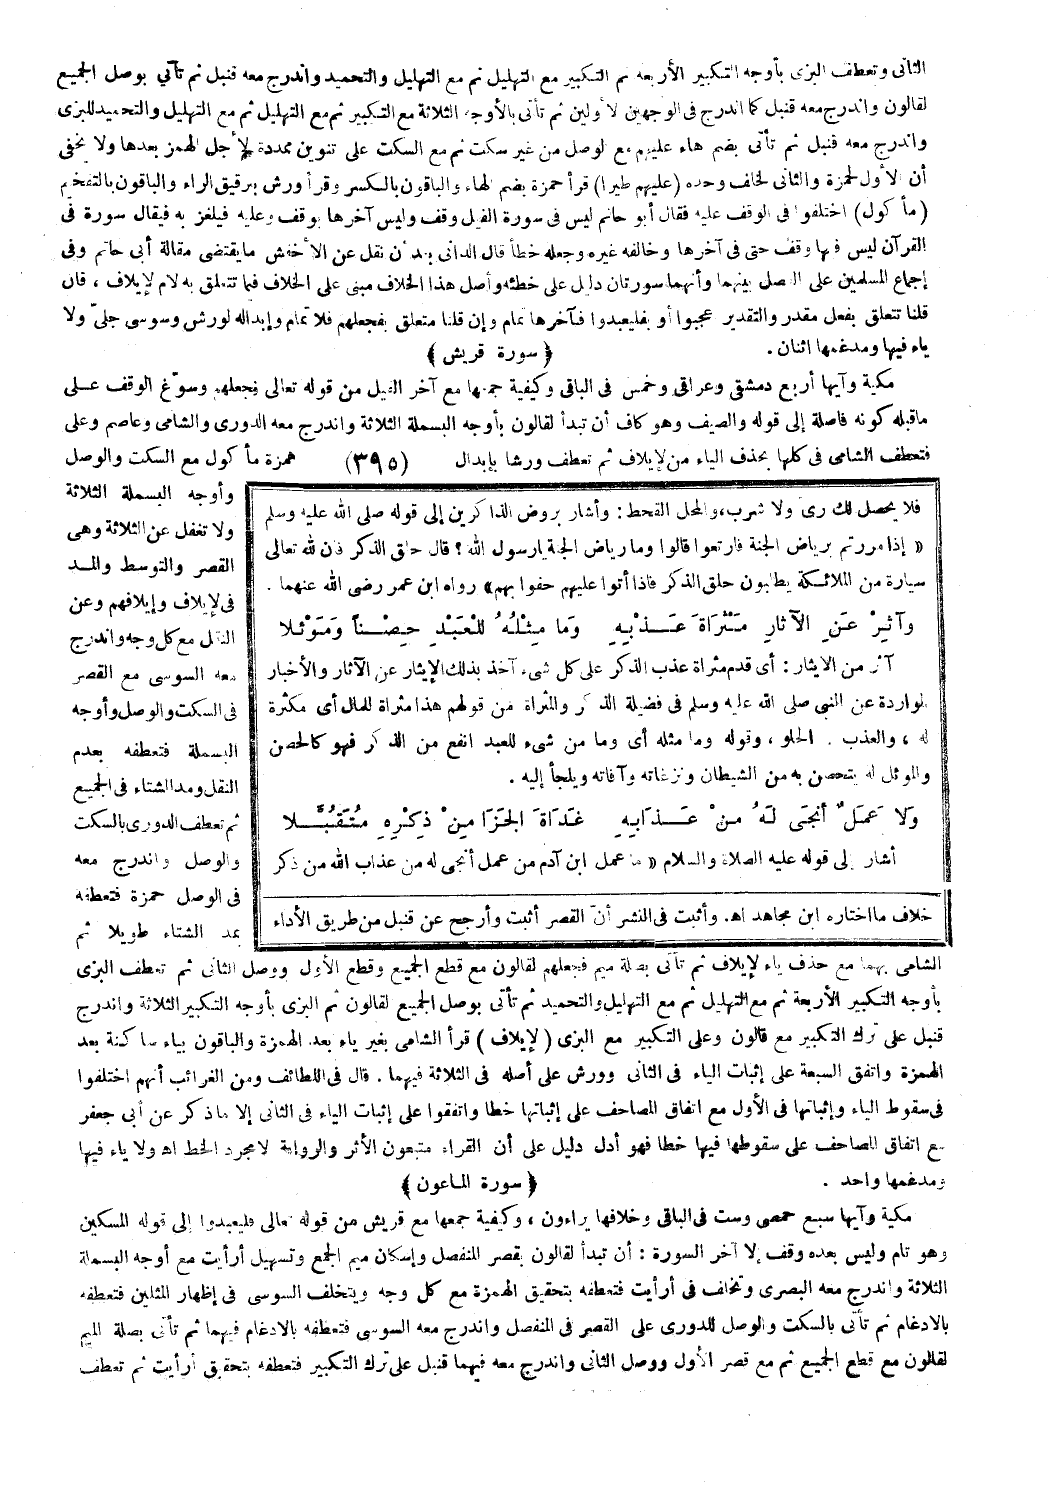 الثانى وتعطف البزى بأوجه التكبير الأربعة ثم التكبير مع التهليل ثم مع التهليل والتحميد واندرج معه قنبل ثم تأتي بوصل الجميع
لقالون واندرج معه قنبل كما اندرج فى الوجهين الأولين ثم تأتى بالأوجه الثلاثة مع التكبير ثم مع التهليل ثم مع التهليل والتحميد للبزى
واندرج معه قنبل ثم تأتى بضم هاء عليهم مع الوصل من غير سكت ثم مع السكت على تنوين ممددة لأجل الهمز بعدها ولا يخفى
أن الأول لحمزة والثانى لخلف وحده (عليهم طيرا) قرأ حمزة بضم الهاء والباقون بالكسر وقرأ ورش بترقيق الراء والباقون بالتفخيم
(مأكول) اختلفوا فى الوقف عليه فقال أبو حاتم ليس فى سورة الفيل وقف وليس آخرها بوقف وعليه فيلغز به فيقال سورة فى
القرآن ليس فيها وقف حتى فى آخرها وخالفه غيره وجعله خطأ قال الدانى بعد أن نقل عن الأخفش ما يقتضى مقالة أبى حاتم وفى
إجماع المسلمين على الفصل بينهما وأنهما سورتان دليل على خطئه وأصل هذا الخلاف مبنى على الخلاف فيما تتعلق به لام لإيلاف ، فان
قلنا تتعلق بفعل مقدر والتقدير عجبوا أو بفليعبدوا فآخرها تمام وإن قلنا متعلق بفجعلهم فلا تمام وإبداله لورش وسوسى جلىّ ولا
ياء فيها ومدغمها اثنان .
﴿ سورة قريش ﴾
مكية وآيها أربع دمشقى وعراقى وخمس فى الباقى وكيفية جمعها مع آخر الفيل من قوله تعالى فجعلهم وسوّغ الوقف على
ماقبله كونه فاصلة إلى قوله والصيف وهو كاف أن تبدأ لقالون بأوجه البسملة الثلاثة واندرج معه الدورى والشامى وعاصم وعلى
فتعطف الشامى فى كلها بحذف الياء من لإيلاف ثم تعطف ورشا بإبدال (٣٩٥) همزة مأكول مع السكت والوصل
وأوجه البسملة الثلاثة
ولا تغفل عن الثلاثة وهى
القصر والتوسط والمد
فى لإيلاف وإيلافهم وعن
النقل مع كل وجه واندرج
معه السوسى مع القصر
فى السكت والوصل وأوجه
البسملة فتعطفه بعدم
النقل ومد الشتاء فى الجميع
ثم تعطف الدورى بالسكت
والوصل واندرج معه
فى الوصل حمزة فتعطفه
بمد الشتاء طويلا ثم
فلا يحصل لك رى ولا شرب، والمحل القحط : وأشار بروض الذاكرين إلى قوله صلى الله عليه وسلم
« إذا مررتم برياض الجنة فارتعوا قالوا وما رياض الجنة يارسول الله ؟ قال حلق الذكر فان لله تعالى
سيارة من الملائكة يطلبون حلق الذكر فاذا أتوا عليهم حفوا بهم» رواه ابن عمر رضى الله عنهما .
وآثِرْ عَنِ الآثارِ مَثْرَاةَ عَذْبِهِ وَما مِثْلُهُ لِلْعَبْدِ حِصْناً وَمَوْئلا
آثر من الايثار : أى قدم مثراة عذب الذكر على كل شىء آخذ بذلك الإيثار عن الآثار والأخبار
الواردة عن النبى صلى الله عليه وسلم فى فضيلة الذكر والمثراة من قولهم هذا مثراة للمال أى مكثرة
له ، والعذب . الحلو ، وقوله وما مثله أى وما من شىء للعبد انفع من الذكر فهو كالحصن
والموئل له يتحصن به من الشيطان ونزغاته وآفاته ويلجأ إليه .
وَلا عَمَلٌ أنجَى لَهُ مِنْ عَذَابِهِ غَدَاةَ الجَزَا مِنْ ذِكْرِهِ مُتَقَبَّلا
أشار إلى قوله عليه الصلاة والسلام « ما عمل ابن آدم من عمل أنجى له من عذاب الله من ذكر
خلاف ما اختاره ابن مجاهد اهـ. وأثبت فى النشر أن القصر أثبت وأرجح عن قنبل من طريق الأداء
الشامى بهما مع حذف ياء لإيلاف ثم تأتى بصلة ميم فجعلهم لقالون مع قطع الجميع وقطع الأول ووصل الثانى ثم تعطف البزى
بأوجه التكبير الأربعة ثم مع التهليل ثم مع التهليل والتحميد ثم تأتى بوصل الجميع لقالون ثم البزى بأوجه التكبير الثلاثة واندرج
قنبل على ترك التكبير مع قالون وعلى التكبير مع البزى ( لإيلاف ) قرأ الشامى بغير ياء بعد الهمزة والباقون بياء ساكنة بعد
الهمزة واتفق السبعة على إثبات الياء فى الثانى وورش على أصله فى الثلاثة فيهما . قال فى اللطائف ومن الغرائب أنهم اختلفوا
فى سقوط الياء وإثباتها فى الأول مع اتفاق المصاحف على إثباتها خطا واتفقوا على إثبات الياء فى الثانى إلا ما ذكر عن أبى جعفر
مع اتفاق المصاحف على سقوطها فيها خطا فهو أدل دليل على أن القراء متبعون الأثر والرواية لامجرد الخط اهـ ولا ياء فيها
ومدغمها واحد .
﴿ سورة الماعون ﴾
مكية وآيها سبع حمصى وست فى الباقى وخلافها يراءون ، وكيفية جمعها مع قريش من قوله تعالى فليعبدوا إلى قوله المسكين
وهو تام وليس بعده وقف إلا آخر السورة : أن تبدأ لقالون بقصر المنفصل وإسكان ميم الجمع وتسهيل أرأيت مع أوجه البسملة
الثلاثة واندرج معه البصرى وتخلف فى أرأيت فتعطفه بتحقيق الهمزة مع كل وجه ويتخلف السوسى فى إظهار المثلين فتعطفه
بالادغام ثم تأتى بالسكت والوصل للدورى على القصر فى المنفصل واندرج معه السوسى فتعطفه بالادغام فيهما ثم تأتى بصلة الميم
لقالون مع قطع الجميع ثم مع قصر الأول ووصل الثانى واندرج معه فيهما قنبل على ترك التكبير فتعطفه بتحقيق أرأيت ثم تعطف